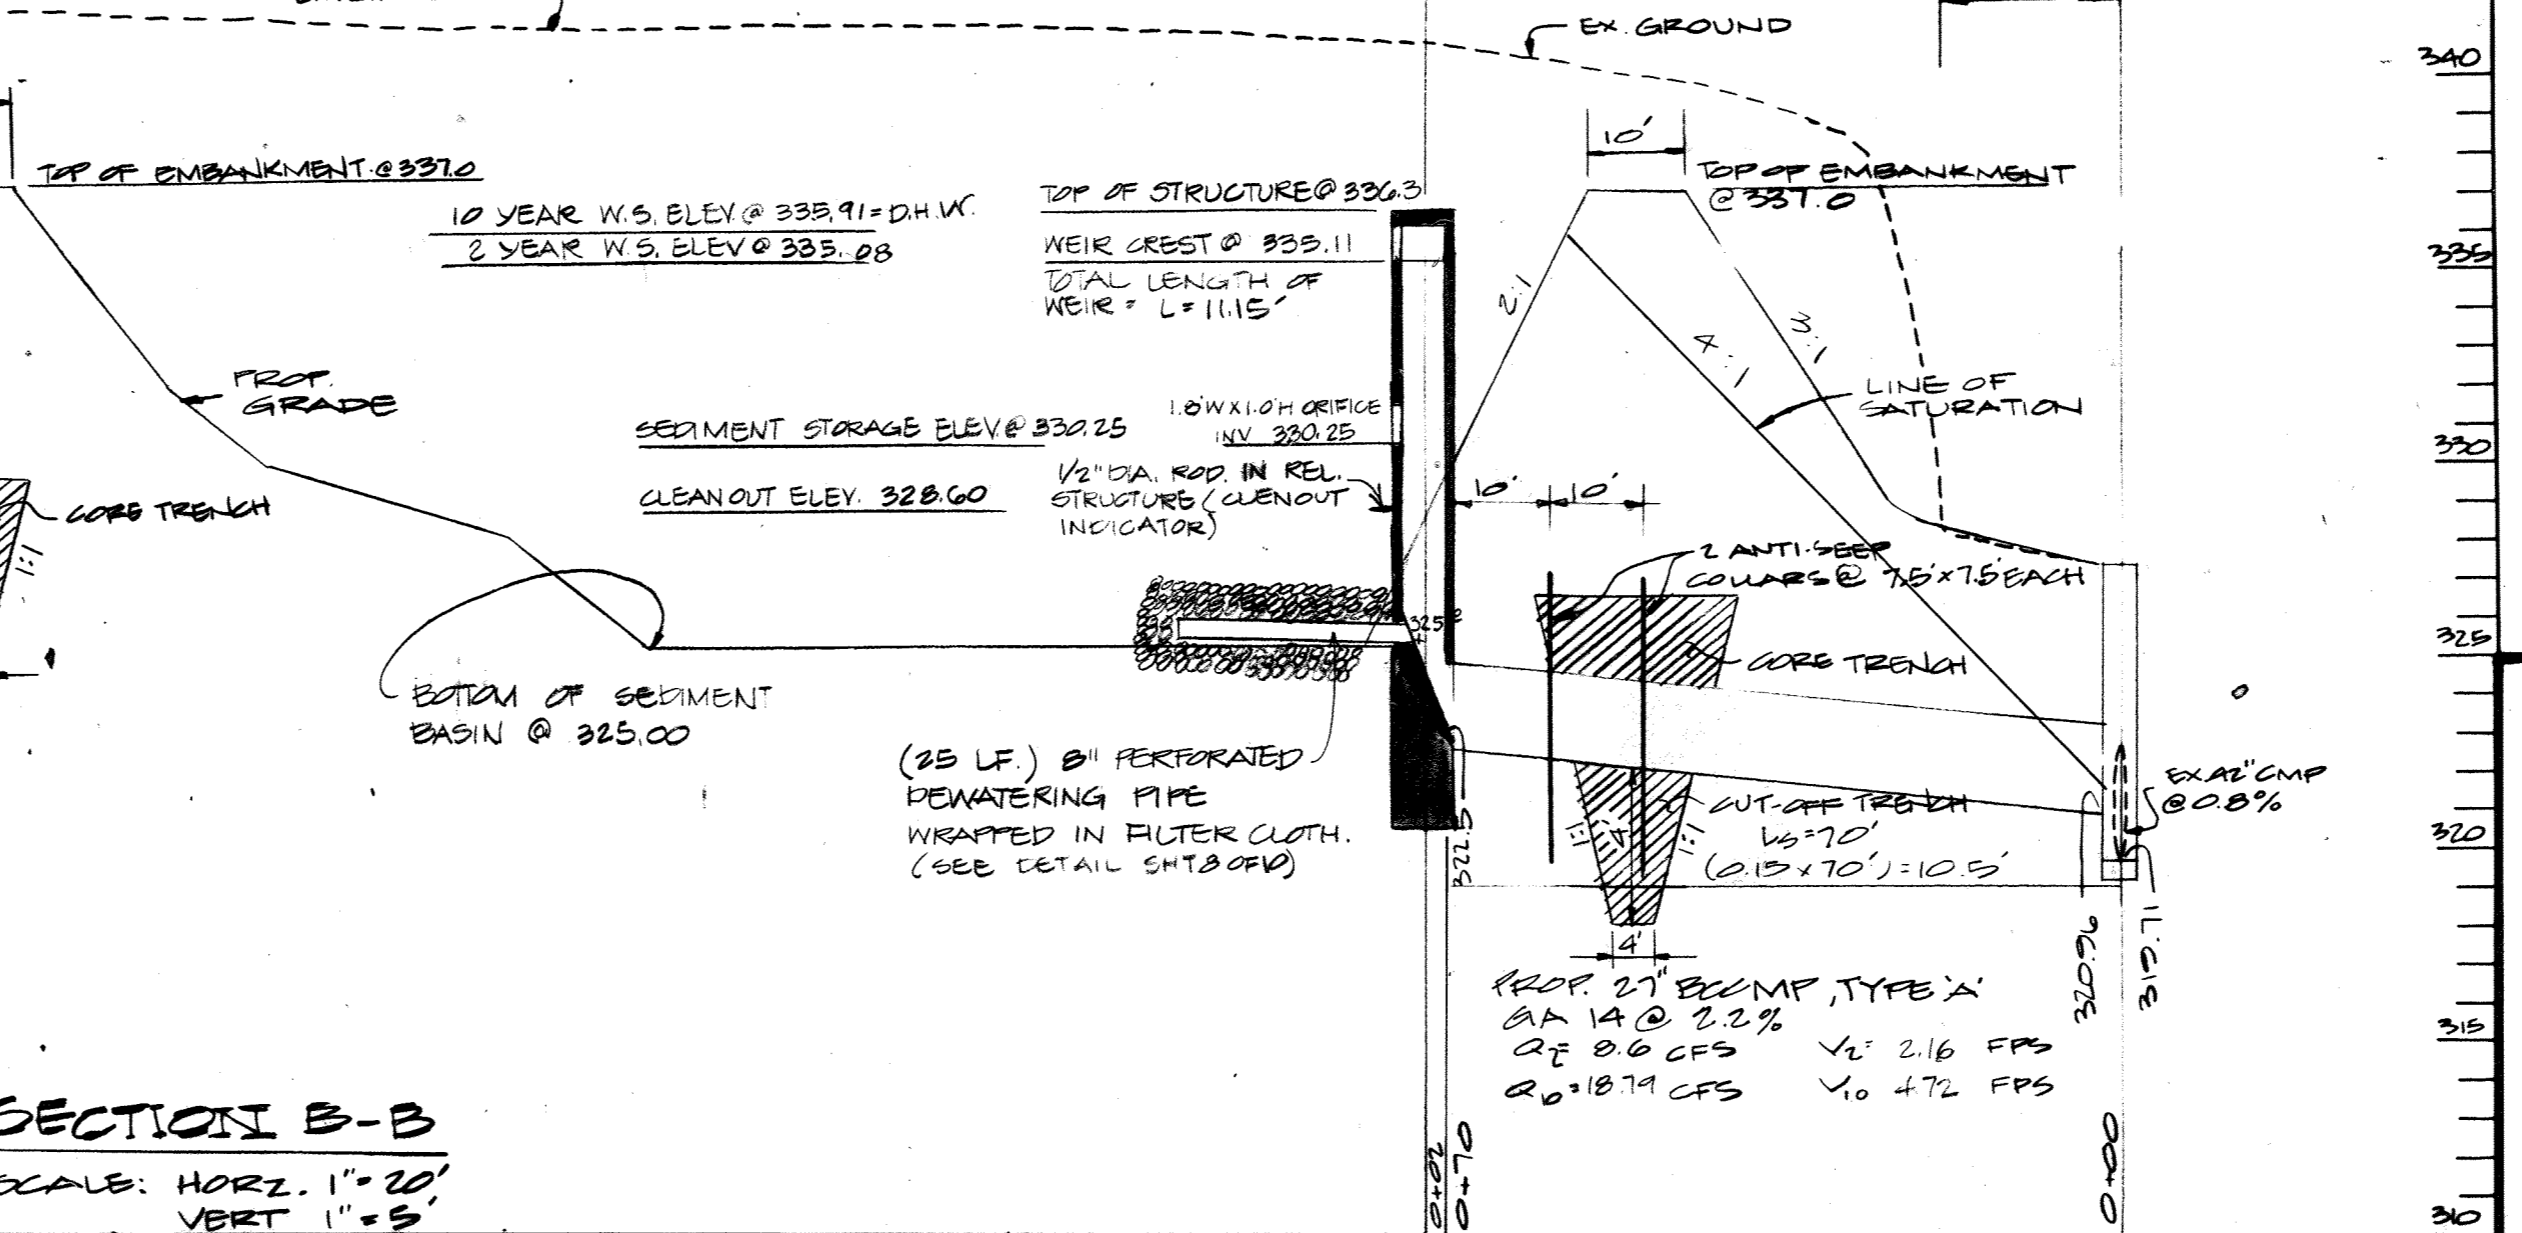 EX. GROUND
340
10'
TOP OF EMBANKMENT @ 337.0
TOP OF EMBANKMENT
@ 337.0
10 YEAR W.S. ELEV @ 335.91 = D.H.W.
2 YEAR W.S. ELEV @ 335.08
TOP OF STRUCTURE @ 336.3
WEIR CREST @ 335.11
TOTAL LENGTH OF
WEIR = L = 11.15'
335
2:1
4:1
3:1
PROP.
GRADE
LINE OF
SATURATION
1.8'W X 1.0'H ORIFICE
INV 330.25
SEDIMENT STORAGE ELEV @ 330.25
330
CLEANOUT ELEV. 328.60
1/2" DIA. ROD. IN REL.
STRUCTURE (CLENOUT
INDICATOR)
10'
10'
CORE TRENCH
1:1
2 ANTI-SEEP
COLLARS @ 7.5' X 7.5' EACH
325
325
CORE TRENCH
BOTTOM OF SEDIMENT
BASIN @ 325.00
(25 LF.) 8" PERFORATED
DEWATERING PIPE
WRAPPED IN FILTER CLOTH.
(SEE DETAIL SHT 8 OF 10)
322.5
1:1
4'
1:1
CUT-OFF TRENCH
LS = 70'
(0.15 x 70') = 10.5'
EX. 42" CMP
@ 0.8%
320
4'
320.96
319.71
PROP. 27" BCCMP, TYPE 'A'
GA 14 @ 2.2%
Q2 = 8.6 CFS V2 = 2.16 FPS
Q10 = 18.79 CFS V10 4.72 FPS
315
SECTION B-B
SCALE: HORZ. 1" = 20'
VERT 1" = 5'
0+02
0+70
0+00
310